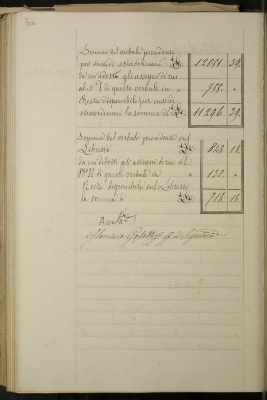 Somma del verbale precedente
per sussidi straordinari £ 12,051. 39.
da cui dedotti gli assegni di cui
al nº I di questo verbale in £ 755. "
Resta disponibile per sussidi
straordinari la somma di £ 11,296. 39.
Somma del verbale precedente sul
Libretto £ 848. 18.
da cui dedotti gli assegni di cui al
Nº II di questo verbale in £ 130. "
Resta disponibile sul Libretto
la somma di £ 718. 18.